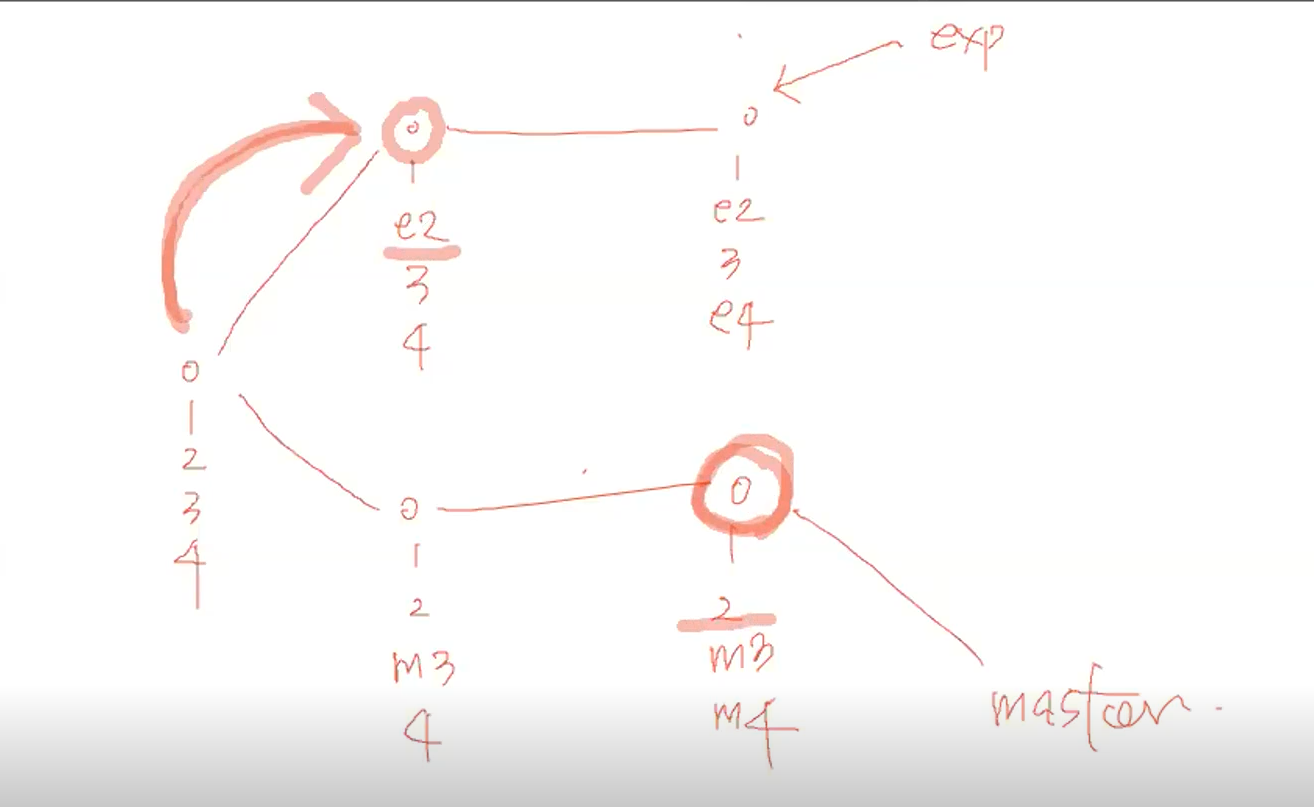 exp
o
1
e2
3
4
o
1
e2
3
e4
o
1
2
3
4
o
1
2
m3
4
o
1
2
m3
m4
master